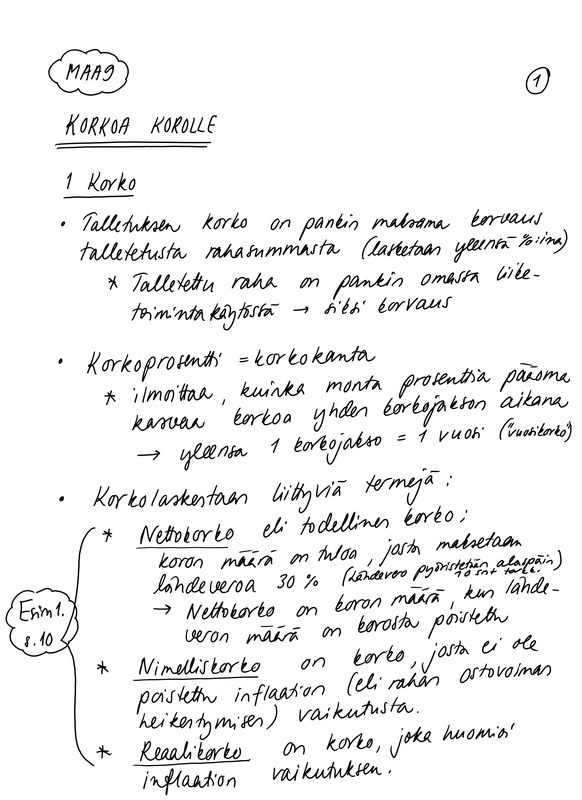 MAA9
1
KORKOA KOROLLE
1 Korko
• Talletuksen korko on pankin maksama korvaus
talletetusta rahasummasta (lasketaan yleensä %:ina)
* Talletettu raha on pankin omassa liike-
toimintakäytössä → siksi korvaus
• Korkoprosentti = korkokanta
* ilmoittaa, kuinka monta prosenttia pääoma
kasvaa korkoa yhden korkojakson aikana
→ yleensä 1 korkojakso = 1 vuosi ("vuosikorko")
• Korkolaskentaan liittyviä termejä:
* Nettokorko eli todellinen korko;
koron määrä on tuloa, josta maksetaan
lähdeveroa 30 % (Lähdevero pyöristetään alaspäin
10 snt tark.)
→ Nettokorko on koron määrä, kun lähde-
veron määrä on korosta poistettu
Esim 1.
s.10
* Nimelliskorko on korko, josta ei ole
poistettu inflaation (eli rahan ostovoiman
heikentymisen) vaikutusta.
* Reaalikorko on korko, joka huomioi
inflaation vaikutuksen.